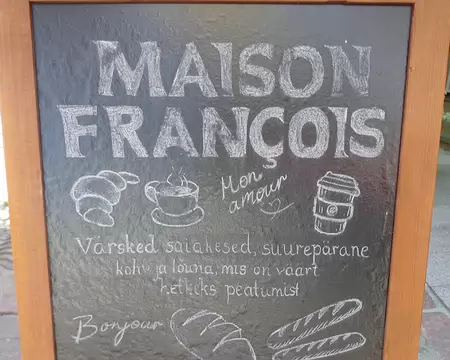 MAISON
FRANÇOIS
Mon
amour
Värsked saiakesed, suurepärane
kohv ja lõuna, mis on väärt
hetkeks peatumist
Bonjour